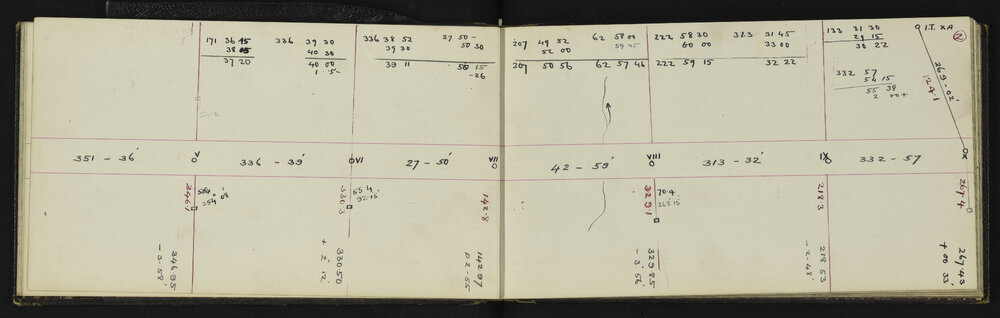 171 36 45
38 05
37 20
336 39 30
40 30
40 00
1 · 5-
336 38 52
39 30
39 11
27 50 -
50 30
50 15
-26
207 49 52
52 00
207 50 56
62 58 00
59 45
62 57 46
222 58 30
60 00
222 59 15
313 31 45
33 00
32 22
31 30
29 15
30 22
332 57
54 15
55 38
2 00+
O I.T. XA
2
269-02'
124.1
351 - 36'
V
336 - 39'
VI
27 - 50'
VII
42 - 59'
VIII
313 - 32'
IX
332 - 57
X
346.7
254° 08'
330.3
55.4
92.15
142.8
329.1
70.4
268.15
218.3
267.4
346.95
-3-58'
330.50
+ 2' 12'
142.97
329.85
- 3' 56'
218.53
-2-48'
267.43
+ 00 33'